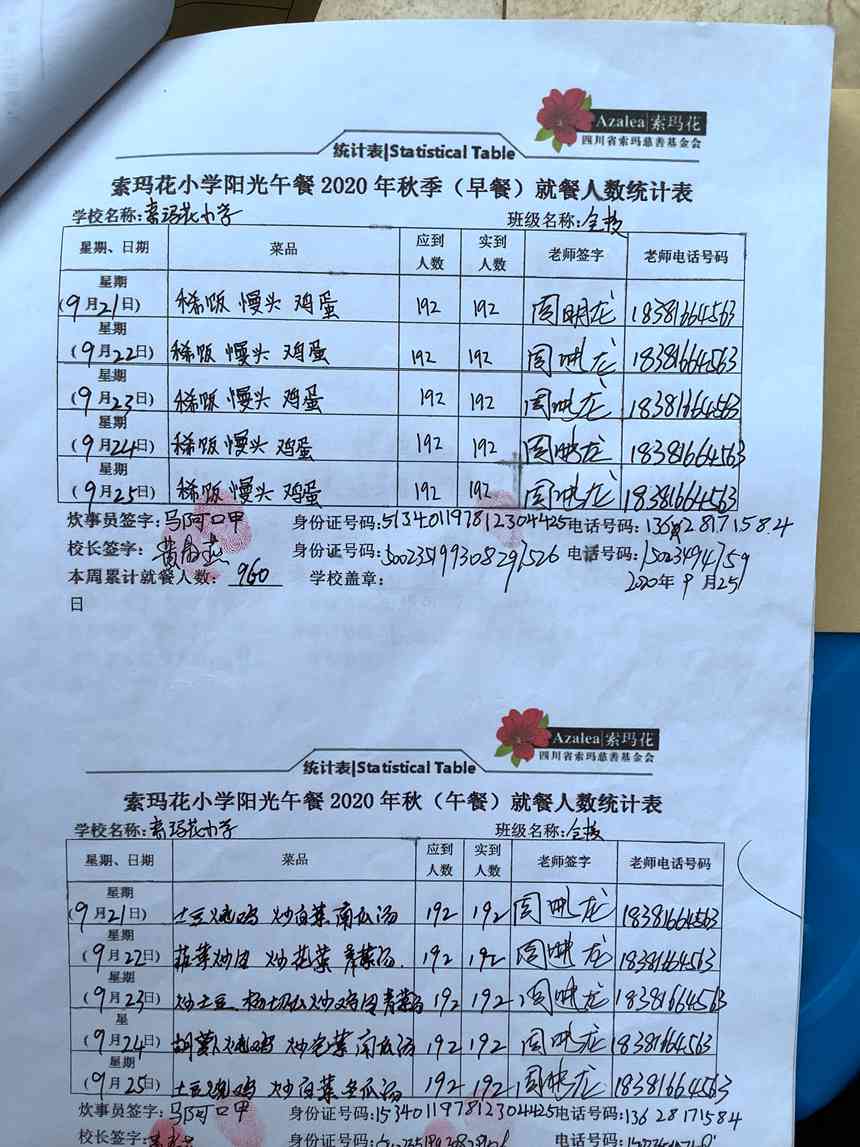 Azalea 索玛花
四川省索玛慈善基金会
统计表|Statistical Table
索玛花小学阳光午餐 2020 年秋季（早餐）就餐人数统计表
学校名称:索玛花小学 班级名称:全校
星期、日期 菜品 应到人数 实到人数 老师签字 老师电话号码
星期
(9月21日) 稀饭 馒头 鸡蛋 192 192 周明龙 18381664563
星期
(9月22日) 稀饭 馒头 鸡蛋 192 192 周龙 18381664563
星期
(9月23日) 稀饭 馒头 鸡蛋 192 192 周龙 18381664563
星期
(9月24日) 稀饭 馒头 鸡蛋 192 192 周龙 18381664563
星期
(9月25日) 稀饭 馒头 鸡蛋 192 192 周龙 18381664563
炊事员签字:马阿口甲 身份证号码:513401197812304425 电话号码:13628171584
校长签字: 身份证号码:500235199308297526 电话号码:15023494759
本周累计就餐人数: 960 学校盖章: 2020年9月25
日
Azalea 索玛花
四川省索玛慈善基金会
统计表|Statistical Table
索玛花小学阳光午餐 2020 年秋（午餐）就餐人数统计表
学校名称:索玛花小学 班级名称:全校
星期、日期 菜品 应到人数 实到人数 老师签字 老师电话号码
星期
(9月21日) 土豆烧鸡 炒白菜 南瓜汤 192 192 周龙 18381664563
星期
(9月22日) 炒肉 炒花菜 青菜汤 192 192 周龙 18381664563
星期
(9月23日) 炒土豆 炒鸡肉 青菜汤 192 192 周龙 18381664563
星
(9月24日) 胡萝卜烧鸡 炒 南瓜汤 192 192 周龙 18381664563
星期
(9月25日) 土豆烧鸡 炒白菜 冬瓜汤 192 192 周龙 18381664563
炊事员签字:马阿口甲 身份证号码:153401197812304425 电话号码:13628171584
校长签字: 身份证号码: 电话号码: